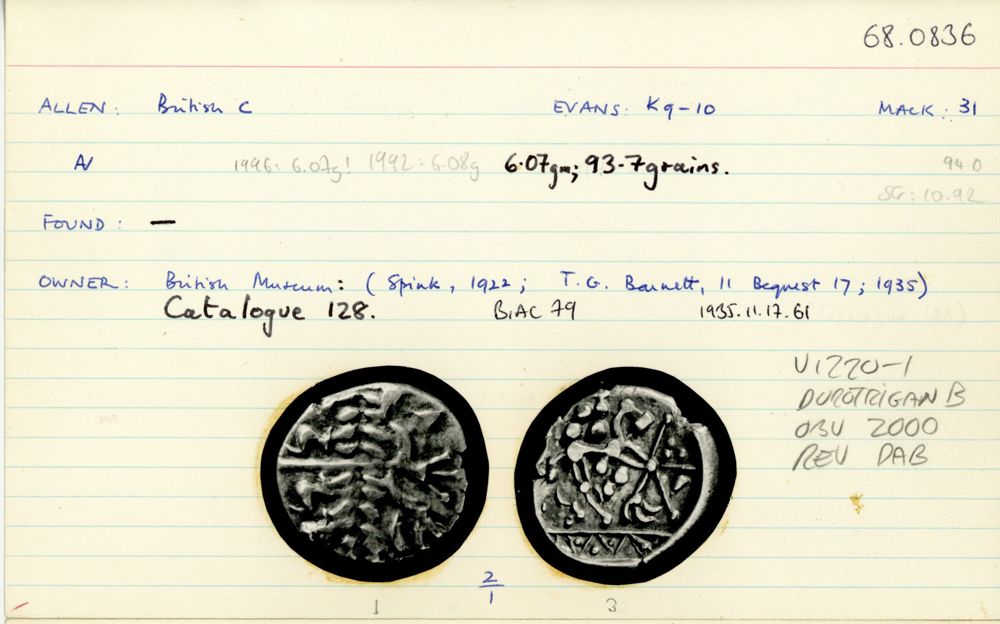 68.0836
ALLEN: British C EVANS: K9-10 MACK: 31
AV 1996: 6.07g! 1992: 6.08g 6.07gm; 93.7grains. 94.0
SG: 10.92
FOUND: —
OWNER: British Museum: (Spink, 1922; T.G. Barnett, 11 Bequest 17; 1935)
Catalogue 128. BIAC 79 1935.11.17.61
V1220-1
DUROTRIGAN B
OBV 2000
REV DAB
2
1
1 3